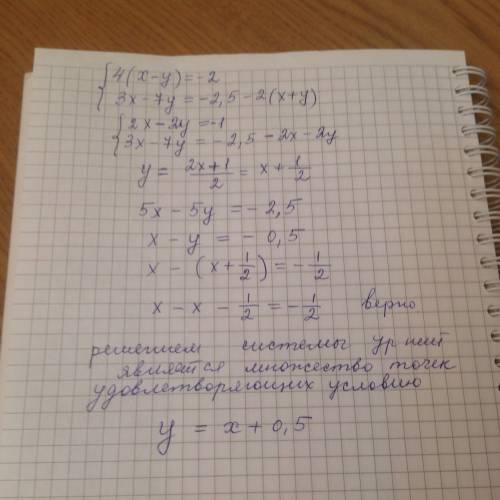 { 4(x-y)=-2
3x-7y = -2,5-2(x+y)
{ 2x-2y=-1
3x-7y = -2,5-2x-2y
y = \frac{2x+1}{2} = x + \frac{1}{2}
5x - 5y = -2,5
x - y = - 0,5
x - (x+\frac{1}{2}) = -\frac{1}{2}
x - x - \frac{1}{2} = -\frac{1}{2} верно
решением системы ур-ний
является множество точек
удовлетворяющих условию
y = x + 0,5